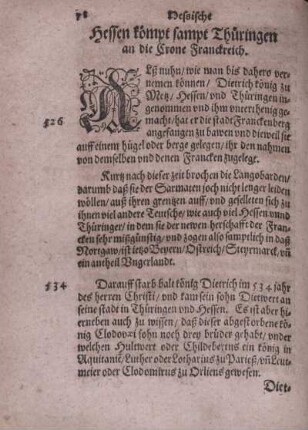 78 Hessische
Hessen kömpt sampt Thüringen
an die Crone Franckreich.
ALß nuhn/ wie man bis dahero ver-
nemen können/ Dietrich könig zu
Metz/ Hessen/ und Thüringen in-
genommen und ihm unterthenig ge-
526 macht/ hat er die stadt Franckenberg
angefangen zu bawen und dieweil sie
auff einem hügel oder berge gelegen/ ihr den nahmen
von demselben und denen Francken zugelegt.
Kurtz nach dieser zeit brochen die Langobarden/
darumb daß sie der Sarmaten joch nicht lenger leiden
wöllen/ auß ihren grentzen auff/ und geselleten sich zu
ihnen viel andere Teutsche/ wie auch viel Hessen unnd
Thüringer/ in dem sie der newen herschafft der Fran-
cken sehr mißgünstig/ und zogen also samptlich in daß
Nortgaw/ ist ietzo Beyern/ Ostreich/ Steyermarck/ uñ
ein antheil Ungerlandt.
534 Darauff starb balt könig Dietrich im 534 jahr
des herren Christi/ und kam sein sohn Dietwert an
seine stadt in Thüringen und Hessen. Es ist aber hi-
erneben auch zu wissen/ daß dieser abgestorbene kö-
nig Clodovæi sohn noch drey brüder gehabt/ under
welchen Hulewert oder Childebertus ein könig in
Aquitaniē/ Luther oder Lotharius zu Parieß/ uñ Leut-
meier oder Clodomirus zu Orliens gewesen.
Diet-